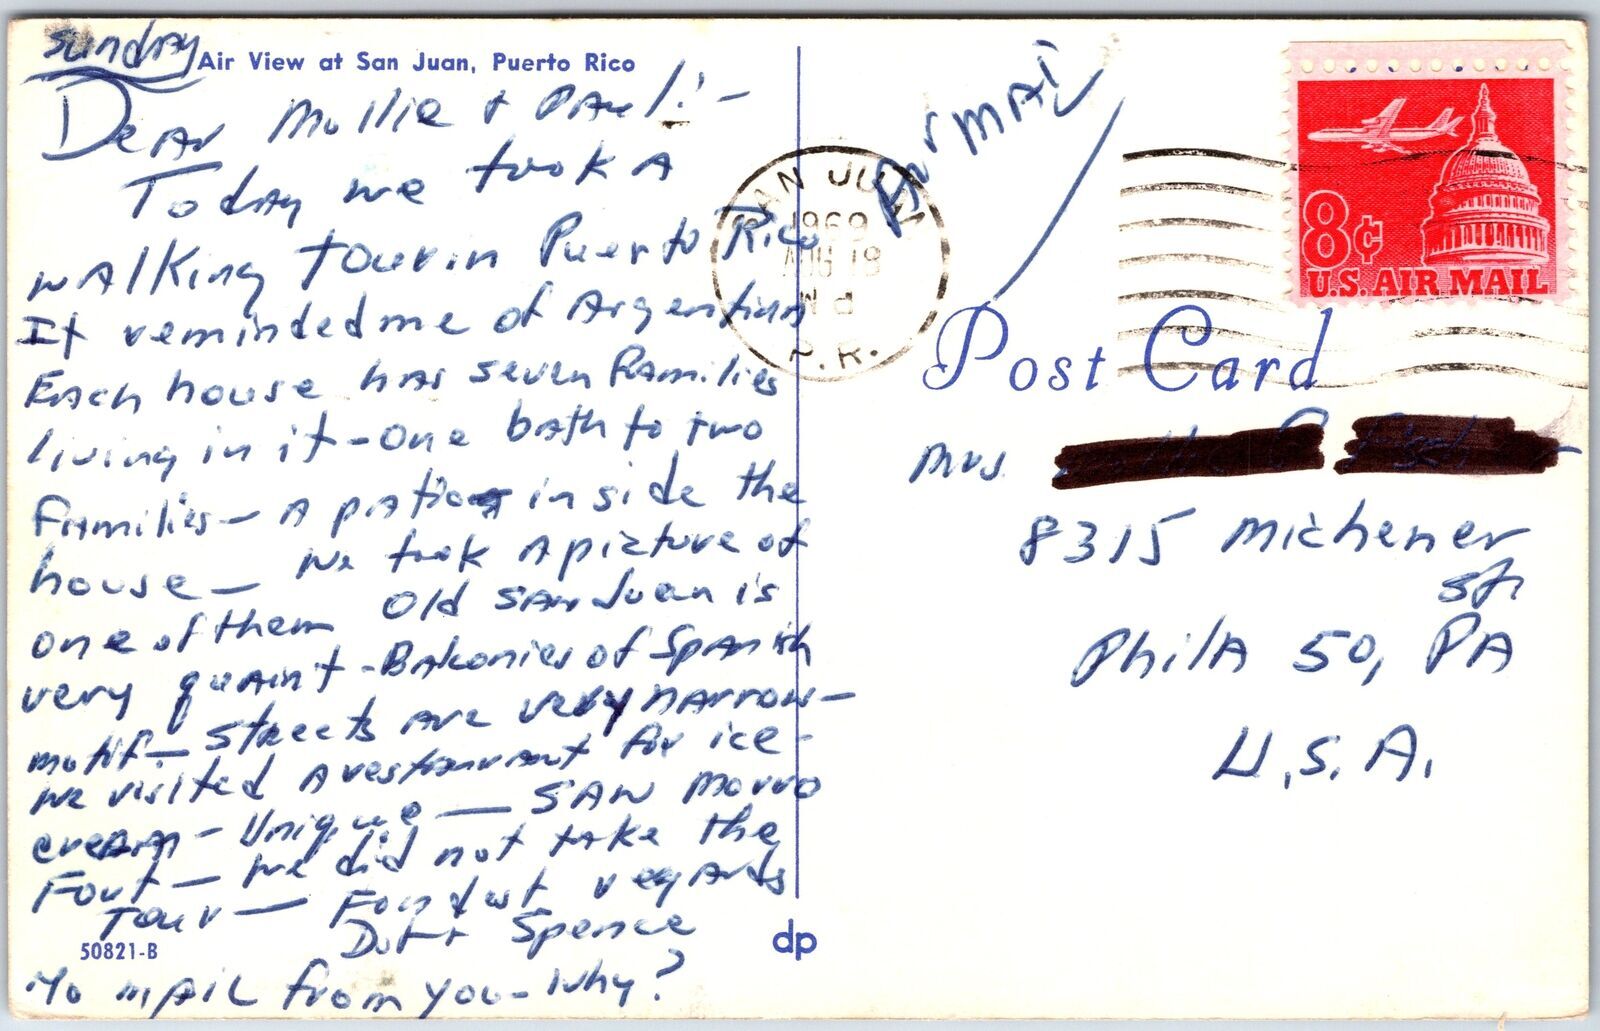 Sunday
Air View at San Juan, Puerto Rico
Dear Mollie & Paul:-
Today we took a
walking tour in Puerto Rico
It reminded me of Argentina
Each house has seven Families
living in it - one bath to two
Families - A patio inside the
house - We took a picture of
one of them Old San Juan is
very quaint - Balconies of Spanish
motif - Streets are very narrow -
We visited a restaurant for ice -
cream - Unique - San Morro
Fort - We did not take the
Tour - Fondest regards
Dot & Spence
50821-B
No mail from you - Why?
dp
Air Mail
SAN JUAN
1969
AUG 18
PM
P.R.
8¢
U.S. AIR MAIL
Post Card
Mrs.
8315 Michener
St.
Phila 50, PA
U.S.A.